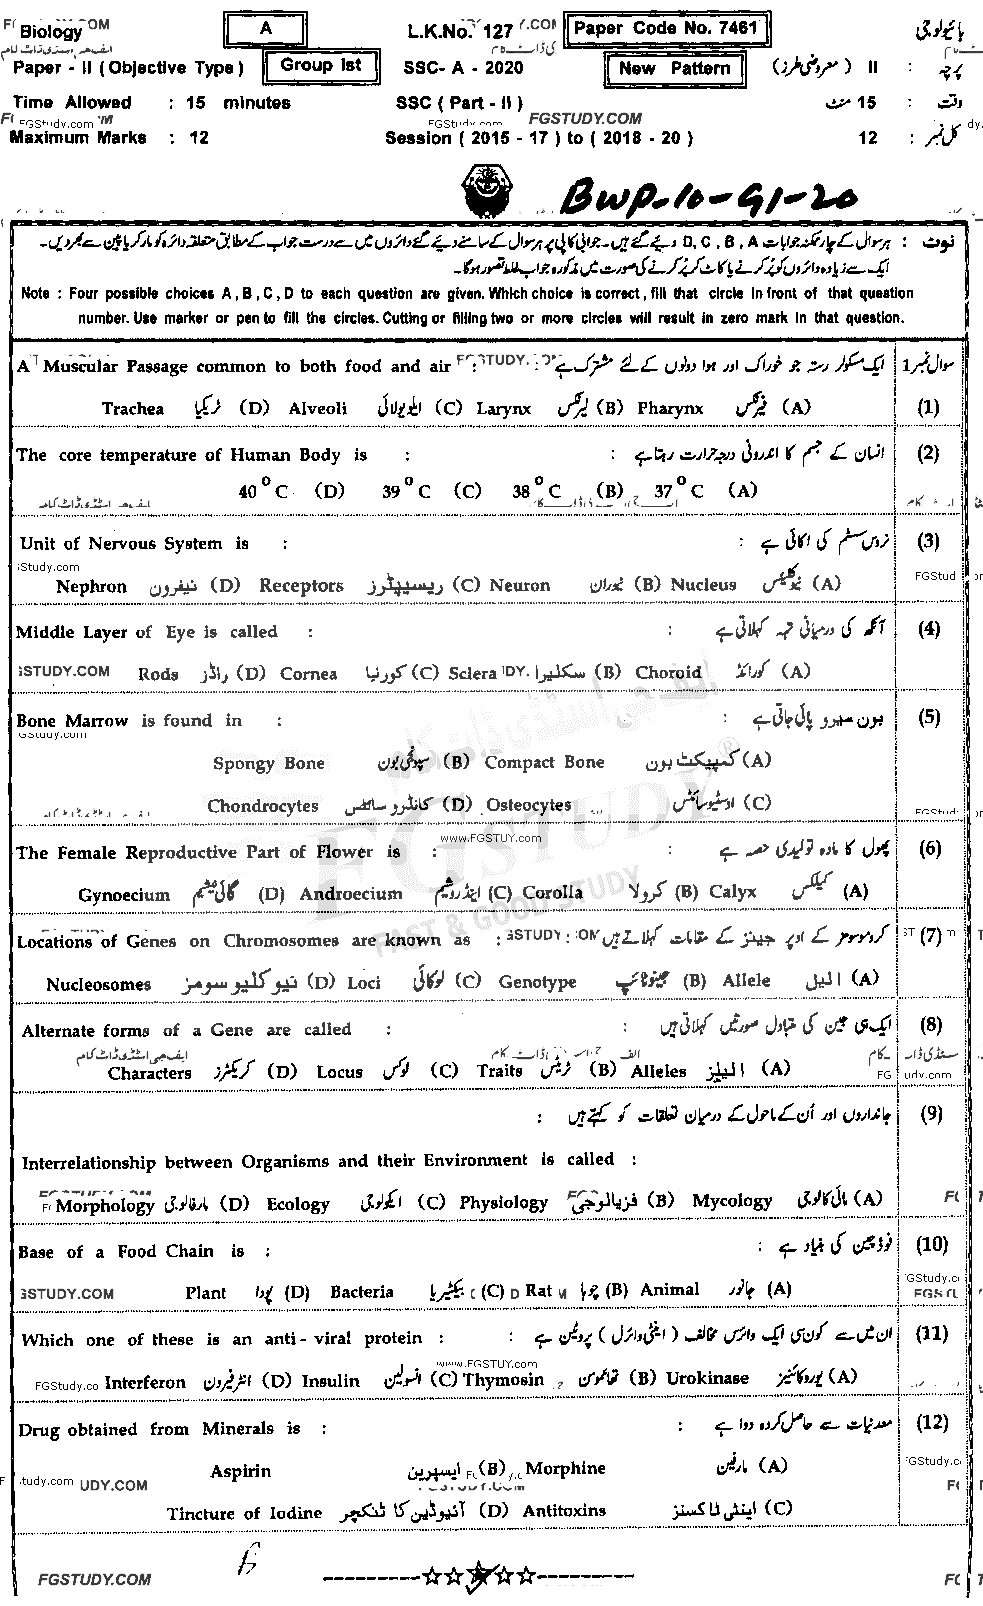 Biology A L.K.No. 127 Paper Code No. 7461 بائیولوجی
Paper - II ( Objective Type ) Group Ist SSC- A - 2020 New Pattern پرچہ : II ( معروضی طرز )
Time Allowed : 15 minutes SSC ( Part - II ) وقت : 15 منٹ
FGStudy.com FGStudy.com FGSTUDY.COM
Maximum Marks : 12 Session ( 2015 - 17 ) to ( 2018 - 20 ) کل نمبر : 12
BWP-10-G1-20
نوٹ : ہر سوال کے چار ممکنہ جوابات D, C, B, A دیئے گئے ہیں۔ جوابی کاپی پر ہر سوال کے سامنے دیئے گئے دائروں میں سے درست جواب کے مطابق متعلقہ دائرہ کو مارکر یا پین سے بھر دیں۔
ایک سے زیادہ دائروں کو پُر کرنے یا کاٹ کر پُر کرنے کی صورت میں مذکورہ جواب غلط تصور ہوگا۔
Note : Four possible choices A , B , C , D to each question are given. Which choice is correct , fill that circle in front of that question
number. Use marker or pen to fill the circles. Cutting or filling two or more circles will result in zero mark in that question.
سوال نمبر 1 ایک مسکولر رستہ جو خوراک اور ہوا دونوں کے لئے مشترک ہے : A Muscular Passage common to both food and air
(1) (A) فیرنکس Pharynx (B) لیرنکس Larynx (C) ایلویولائی Alveoli (D) ٹریکیا Trachea
(2) انسان کے جسم کا اندرونی درجہ حرارت رہتا ہے : The core temperature of Human Body is :
(A) 37°C (B) 38°C (C) 39°C (D) 40°C
(3) نروس سسٹم کی اکائی ہے : Unit of Nervous System is :
(A) نیوکلیئس Nucleus (B) نیوران Neuron (C) ریسیپٹرز Receptors (D) نیفرون Nephron
(4) آنکھ کی درمیانی تہہ کہلاتی ہے : Middle Layer of Eye is called :
(A) کورائڈ Choroid (B) سکلیرا Sclera (C) کورنیا Cornea (D) راڈز Rods
(5) بون میرو پائی جاتی ہے : Bone Marrow is found in :
(A) کمپیکٹ بون Compact Bone (B) سپونجی بون Spongy Bone
(C) اوسٹیوسائٹس Osteocytes (D) کانڈروسائٹس Chondrocytes
www.FGSTUY.com
(6) پھول کا مادہ تولیدی حصہ ہے : The Female Reproductive Part of Flower is :
(A) کیلکس Calyx (B) کرولا Corolla (C) اینڈروشیم Androecium (D) گائی نیشیم Gynoecium
FG STUDY ®
FAST & GOOD STUDY
(7) کروموسومز کے اوپر جینز کے مقامات کہلاتے ہیں : Locations of Genes on Chromosomes are known as
(A) الیل Allele (B) جینوٹائپ Genotype (C) لوکائی Loci (D) نیوکلیوسومز Nucleosomes
(8) ایک ہی جین کی متبادل صورتیں کہلاتی ہیں : Alternate forms of a Gene are called :
(A) الیلز Alleles (B) ٹریٹس Traits (C) لوکس Locus (D) کریکٹرز Characters
(9) جانداروں اور اُن کے ماحول کے درمیان تعلقات کو کہتے ہیں :
Interrelationship between Organisms and their Environment is called :
(A) مائی کالوجی Mycology (B) فزیالوجی Physiology (C) ایکولوجی Ecology (D) مارفالوجی Morphology
(10) فوڈ چین کی بنیاد ہے : Base of a Food Chain is :
(A) جانور Animal (B) چوہا Rat (C) بیکٹیریا Bacteria (D) پودا Plant
(11) ان میں سے کون سی ایک وائرس مخالف ( اینٹی وائرل ) پروٹین ہے : Which one of these is an anti - viral protein :
www.FGSTUY.com
(A) یوروکائنیز Urokinase (B) تھائموسن Thymosin (C) انسولین Insulin (D) انٹرفیرون Interferon
(12) معدنیات سے حاصل کردہ دوا ہے : Drug obtained from Minerals is :
(A) مارفین Morphine (B) ایسپرین Aspirin
(C) اینٹی ٹاکسنز Antitoxins (D) آئیوڈین کا ٹنکچر Tincture of Iodine
FGSTUDY.COM